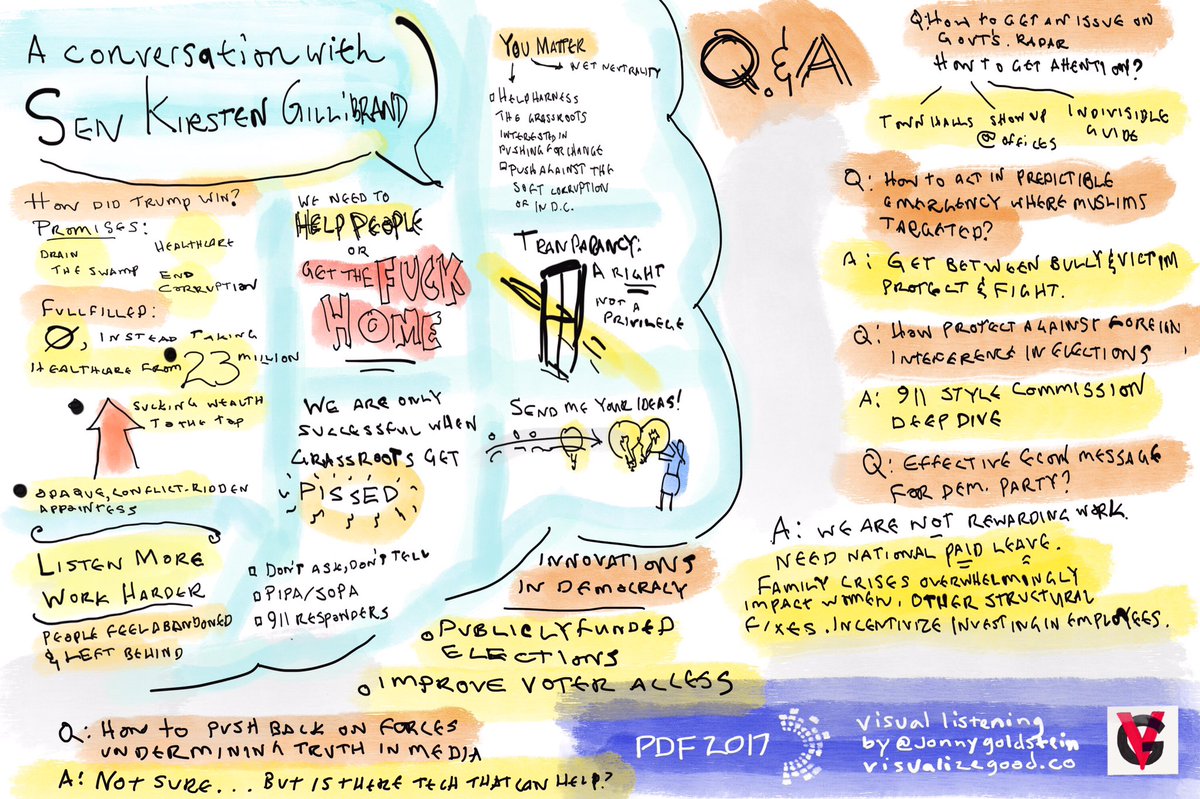 A conversation with
Sen Kirsten Gillibrand
How did Trump win?
Promises:
Drain
the swamp
Healthcare
End
corruption
Fullfilled:
Ø, instead taking
healthcare from 23 million
sucking wealth
to the top
opaque, conflict-ridden
appointess
Listen More
Work Harder
People feel abandoned
& left behind
We need to
Help People
or
Get the FUCK
HOME
We are only
successful when
grassroots get
PISSED
Don't ask, Don't tell
PIPA/SOPA
911 responders
You Matter
Net neutrality
Help harness
the grassroots
interested in
pushing for change
Push against the
soft corruption
of in D.C.
Tranparancy:
A right
not a
privilege
Send me your ideas!
Innovations
in Democracy
Publicly funded
elections
Improve voter access
Q: How to push back on forces
undermining truth in media
A: Not sure... but is there tech that can help?
Q.&A
Q: How to get an issue on
Gov't's. radar
How to get attention?
Town halls
Show up
@ offices
Indivisible
Guide
Q: How to act in predictible
emargency where Muslims
targated?
A: Get between bully & victim
protect & fight.
Q: How protect against foreign
inteference in elections
A: 911 style commission
deep dive
Q: Effective econ message
for Dem. Party?
A: We are not rewarding work.
Need national paid leave.
Family crises overwhelmingly
impact women. Other structural
fixes. Incentivize investing in employees.
PDF 2017
visual listening
by @jonnygoldstein
visualizegood.co
VG